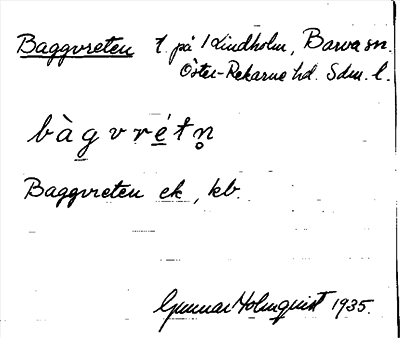 Baggvreten t. på 1 Lindholm, Barva sn.
Öster-Rekarne hd. Sdm. l.
bàgvrétn̥
Baggvreten ek, kb.
Gunnar Holmquist 1935.